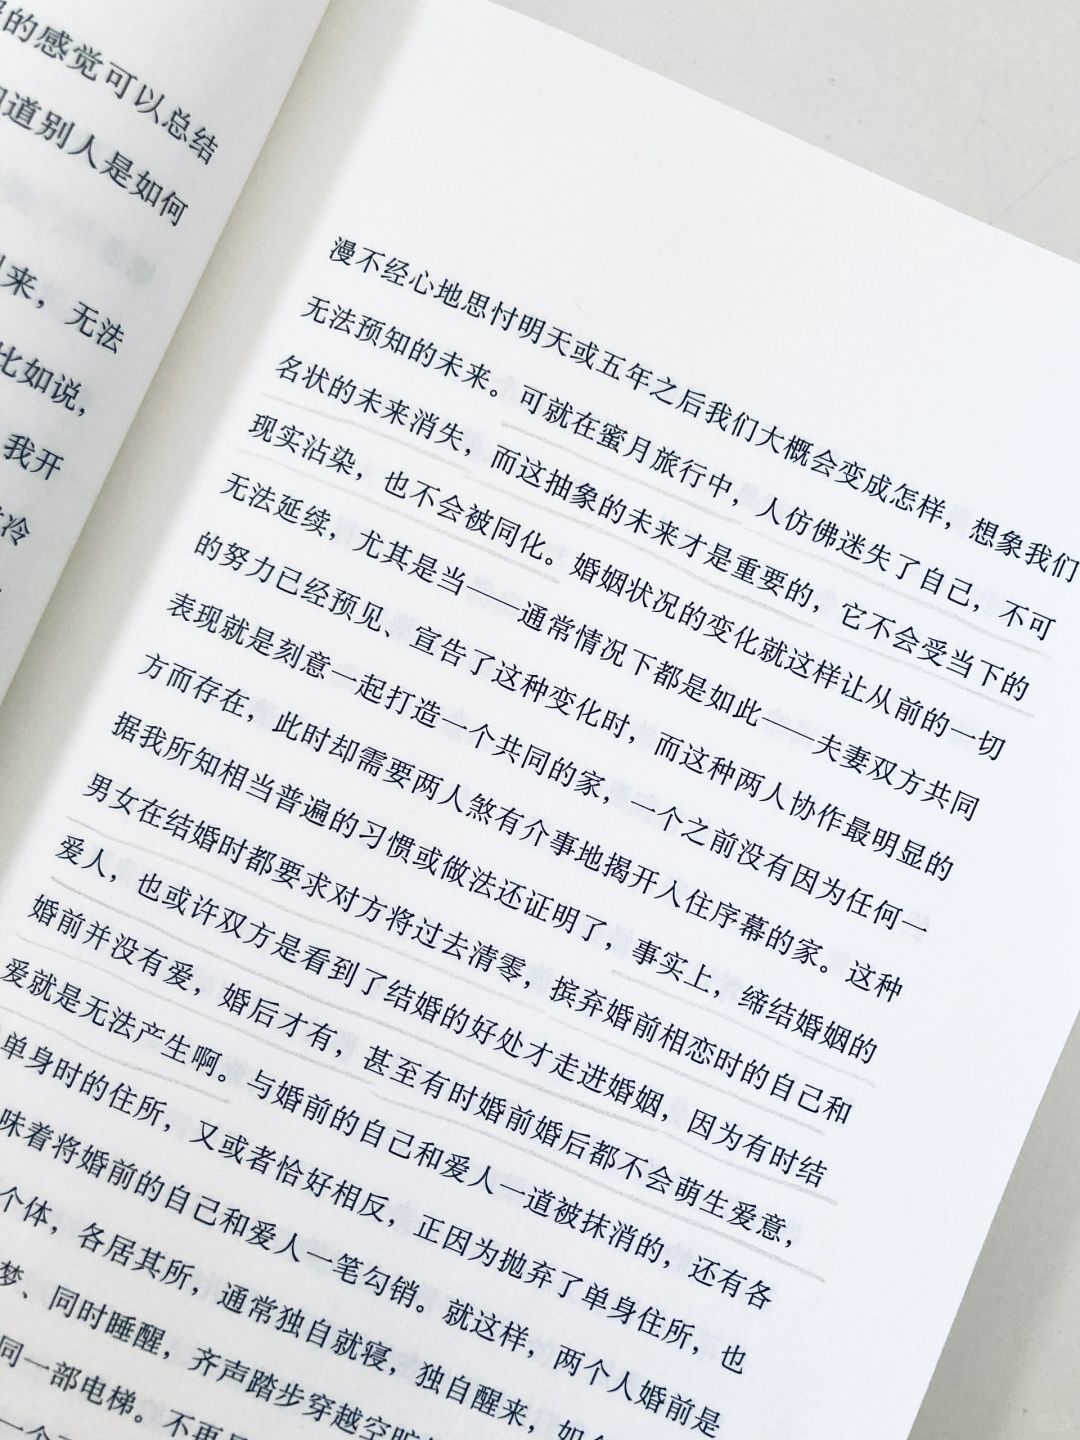 的感觉可以总结
道别人是如何
来，无法
比如说，
我开
冷
漫不经心地思忖明天或五年之后我们大概会变成怎样，想象我们
无法预知的未来。可就在蜜月旅行中，人仿佛迷失了自己，不可
名状的未来消失，而这抽象的未来才是重要的，它不会受当下的
现实沾染，也不会被同化。婚姻状况的变化就这样让从前的一切
无法延续，尤其是当——通常情况下都是如此——夫妻双方共同
的努力已经预见、宣告了这种变化时，而这种两人协作最明显的
表现就是刻意一起打造一个共同的家，一个之前没有因为任何一
方而存在，此时却需要两人煞有介事地揭开入住序幕的家。这种
据我所知相当普遍的习惯或做法还证明了，事实上，缔结婚姻的
男女在结婚时都要求对方将过去清零，摈弃婚前相恋时的自己和
爱人，也或许双方是看到了结婚的好处才走进婚姻，因为有时结
婚前并没有爱，婚后才有，甚至有时婚前婚后都不会萌生爱意，
爱就是无法产生啊。与婚前的自己和爱人一道被抹消的，还有各
单身时的住所，又或者恰好相反，正因为抛弃了单身住所，也
味着将婚前的自己和爱人一笔勾销。就这样，两个人婚前是
个体，各居其所，通常独自就寝，独自醒来，如
梦、同时睡醒，齐声踏步穿越空
同一部电梯。不再
一个